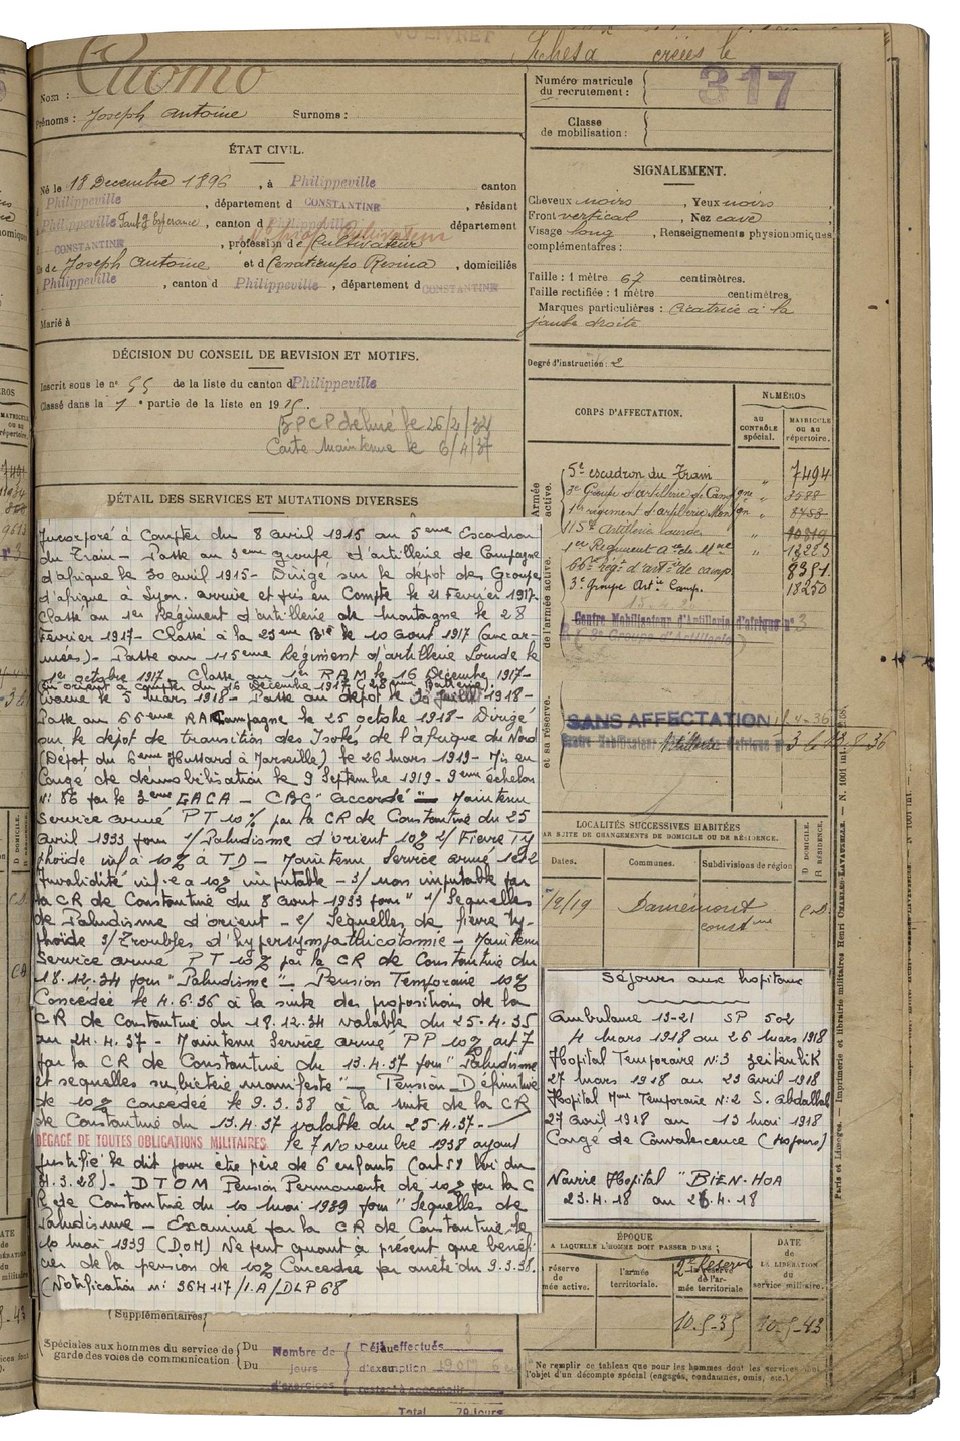 VU LIVRET
créées le
Nom : Cuomo
Prénoms : Joseph Antoine Surnoms :
Numéro matricule du recrutement : 317
Classe de mobilisation :
ÉTAT CIVIL.
Né le 18 Décembre 1896, à Philippeville canton
d Philippeville, département d CONSTANTINE, résident
à Philippeville, canton d Philippeville département
d CONSTANTINE, profession de Cultivateur
fils de Joseph Antoine et d Rosina, domiciliés
à Philippeville, canton d Philippeville, département d CONSTANTINE
Marié à
SIGNALEMENT.
Cheveux noirs, Yeux noirs,
Front vertical, Nez cave
Visage long, Renseignements physionomiques
complémentaires :
Taille : 1 mètre 67 centimètres.
Taille rectifiée : 1 mètre centimètres.
Marques particulières : Cicatrice à la
jambe droite
Degré d'instruction : 2
DÉCISION DU CONSEIL DE REVISION ET MOTIFS.
Inscrit sous le n° 55 de la liste du canton d Philippeville
Classé dans la 1e partie de la liste en 1915.
BPCP délivré le 26/2/32
Carte Maintenue le 6/4/37
CORPS D'AFFECTATION.
NUMÉROS
AU CONTRÔLE spécial.
MATRICULE OU AU répertoire.
Armée active.
5e escadron du Train " 7494
3e Groupe d'artillerie de Campgne " 3588
1er régiment d'artillerie Montgn " 8758
115e Artillerie lourde
1er Régiment Arie de Mgne " 12223
66e Regt d'artie de camp. 8381
3e Groupe Artie Camp. 18250
Centre Mobilisateur d'Artillerie d'Afrique n° 3
SANS AFFECTATION
DÉTAIL DES SERVICES ET MUTATIONS DIVERSES
Incorporé à Compter du 8 avril 1915 au 5eme Escadron
du Train - Passe au 3eme groupe d'artillerie de Campagne
d'afrique le 30 avril 1915 - Dirigé sur le depot des Groupes
d'afrique à Lyon. arrivé et pris en Compte le 21 Fevrier 1917.
Classé au 1er Régiment d'artillerie de montagne le 28
Fevrier 1917 - Classé à la 23eme Bie le 10 aout 1917 (aux ar-
mées) - Passe au 115eme Régiment d'artillerie Lourde le
1er octobre 1917 Classe au 1er R.A.M. le 16 Décembre 1917 -
En orient à compter du 16 Decembre 1917 (28eme Batterie)
evacué le 3 mars 1918 - Passe au depot le 30 Juillet 1918 -
Passe au 66eme RA Campagne le 25 octobre 1918 - Dirigé
sur le depot de transition des Isolés de l'afrique du Nord
(Dépot du 6eme Hussard à Marseille) le 26 mars 1919 - Mis en
Congé de démobilisation le 9 Septembre 1919 - 9eme échelon
N: 86 par le 3eme GACA - CBC "accordé" - Maintenu
Service armé PT 10% par la CR de Constantine du 25
avril 1933 pour 1/ Paludisme d'orient 10% 2/ Fievre Ty
phoide inf à 10% à TD - Maintenu Service armé 1er 2
Invalidité inf.e a 10% imputable - 3/ non imputable par
la CR de Constantine du 8 aout 1933 pour "1/ Sequelles
de Paludisme d'orient - 2/ Sequelles de fievre ty-
phoïde 3/ Troubles d'hypersympathicotomie - Maintenu
Service armé PT 10% par la CR de Constantine du
18.12.34 pour "Paludisme" - Pension Temporaire 10%
Concédée le 4.6.36 à la suite des propositions de la
CR de Constantine du 18.12.34 valable du 25.4.35
au 24.4.37 - Maintenu Service armé PP 10% art 7
par la CR de Constantine du 13.4.37 pour "Paludisme
et sequelles subictérie manifeste" - Pension Définitive
de 10% concedée le 9.3.38 à la suite de la CR
de Constantine du 13.4.37 valable du 25.4.37 -
DÉGAGÉ DE TOUTES OBLIGATIONS MILITAIRES le 7 Novembre 1938 ayant
justifié le dit jour être père de 6 enfants (art 59 loi du
31.3.28) - DTOM Pension Permanente de 10% par la C
R de Constantine du 10 mai 1939 pour "Sequelles de
Paludisme - Examiné par la CR de Constantine le
10 mai 1939 (DOM) Ne peut quant à présent que bénéfi
cier de la pension de 10% Concedée par arrêté du 9.3.38.
(Notification n: 36H117/I.A/DLP68
LOCALITÉS SUCCESSIVES HABITÉES
PAR SUITE DE CHANGEMENTS DE DOMICILE OU DE RÉSIDENCE.
Dates. Communes. Subdivisions de région D DOMICILE. R RÉSIDENCE.
/9/19 Damrémont Constne
Séjours aux hopitaux
Ambulance 13-21 SP 502
4 mars 1918 au 26 mars 1918
Hopital Temporaire N:3 Zeitenlik
27 mars 1918 au 23 avril 1918
Hopital Mme Temporaire N:2 S. Abdallah
27 avril 1918 au 13 mai 1918
Congé de Convalescence (40 jours)
Navire Hopital "BIEN-HOA
23.4.18 au 26.4.18
ÉPOQUE
A LAQUELLE L'HOMME DOIT PASSER DANS :
réserve de l'armée active. l'armée territoriale. 2e Réserve la réserve de l'armée territoriale
DATE DE LA LIBÉRATION du service militaire.
10-5-35 10-5-43
(Supplémentaires)
Spéciales aux hommes du service de garde des voies de communication Du Du
Nombre de jours d'exercices
Déjà effectués
d'exemption
restant à accomplir
Total 70 jours
Ne remplir ce tableau que pour les hommes dont les services font l'objet d'un décompte spécial (engagés, condamnés, omis, etc.)
Paris et Limoges. Imprimerie et librairie militaires Henri CHARLES-LAVAUZELLE. — N. 1001 int.